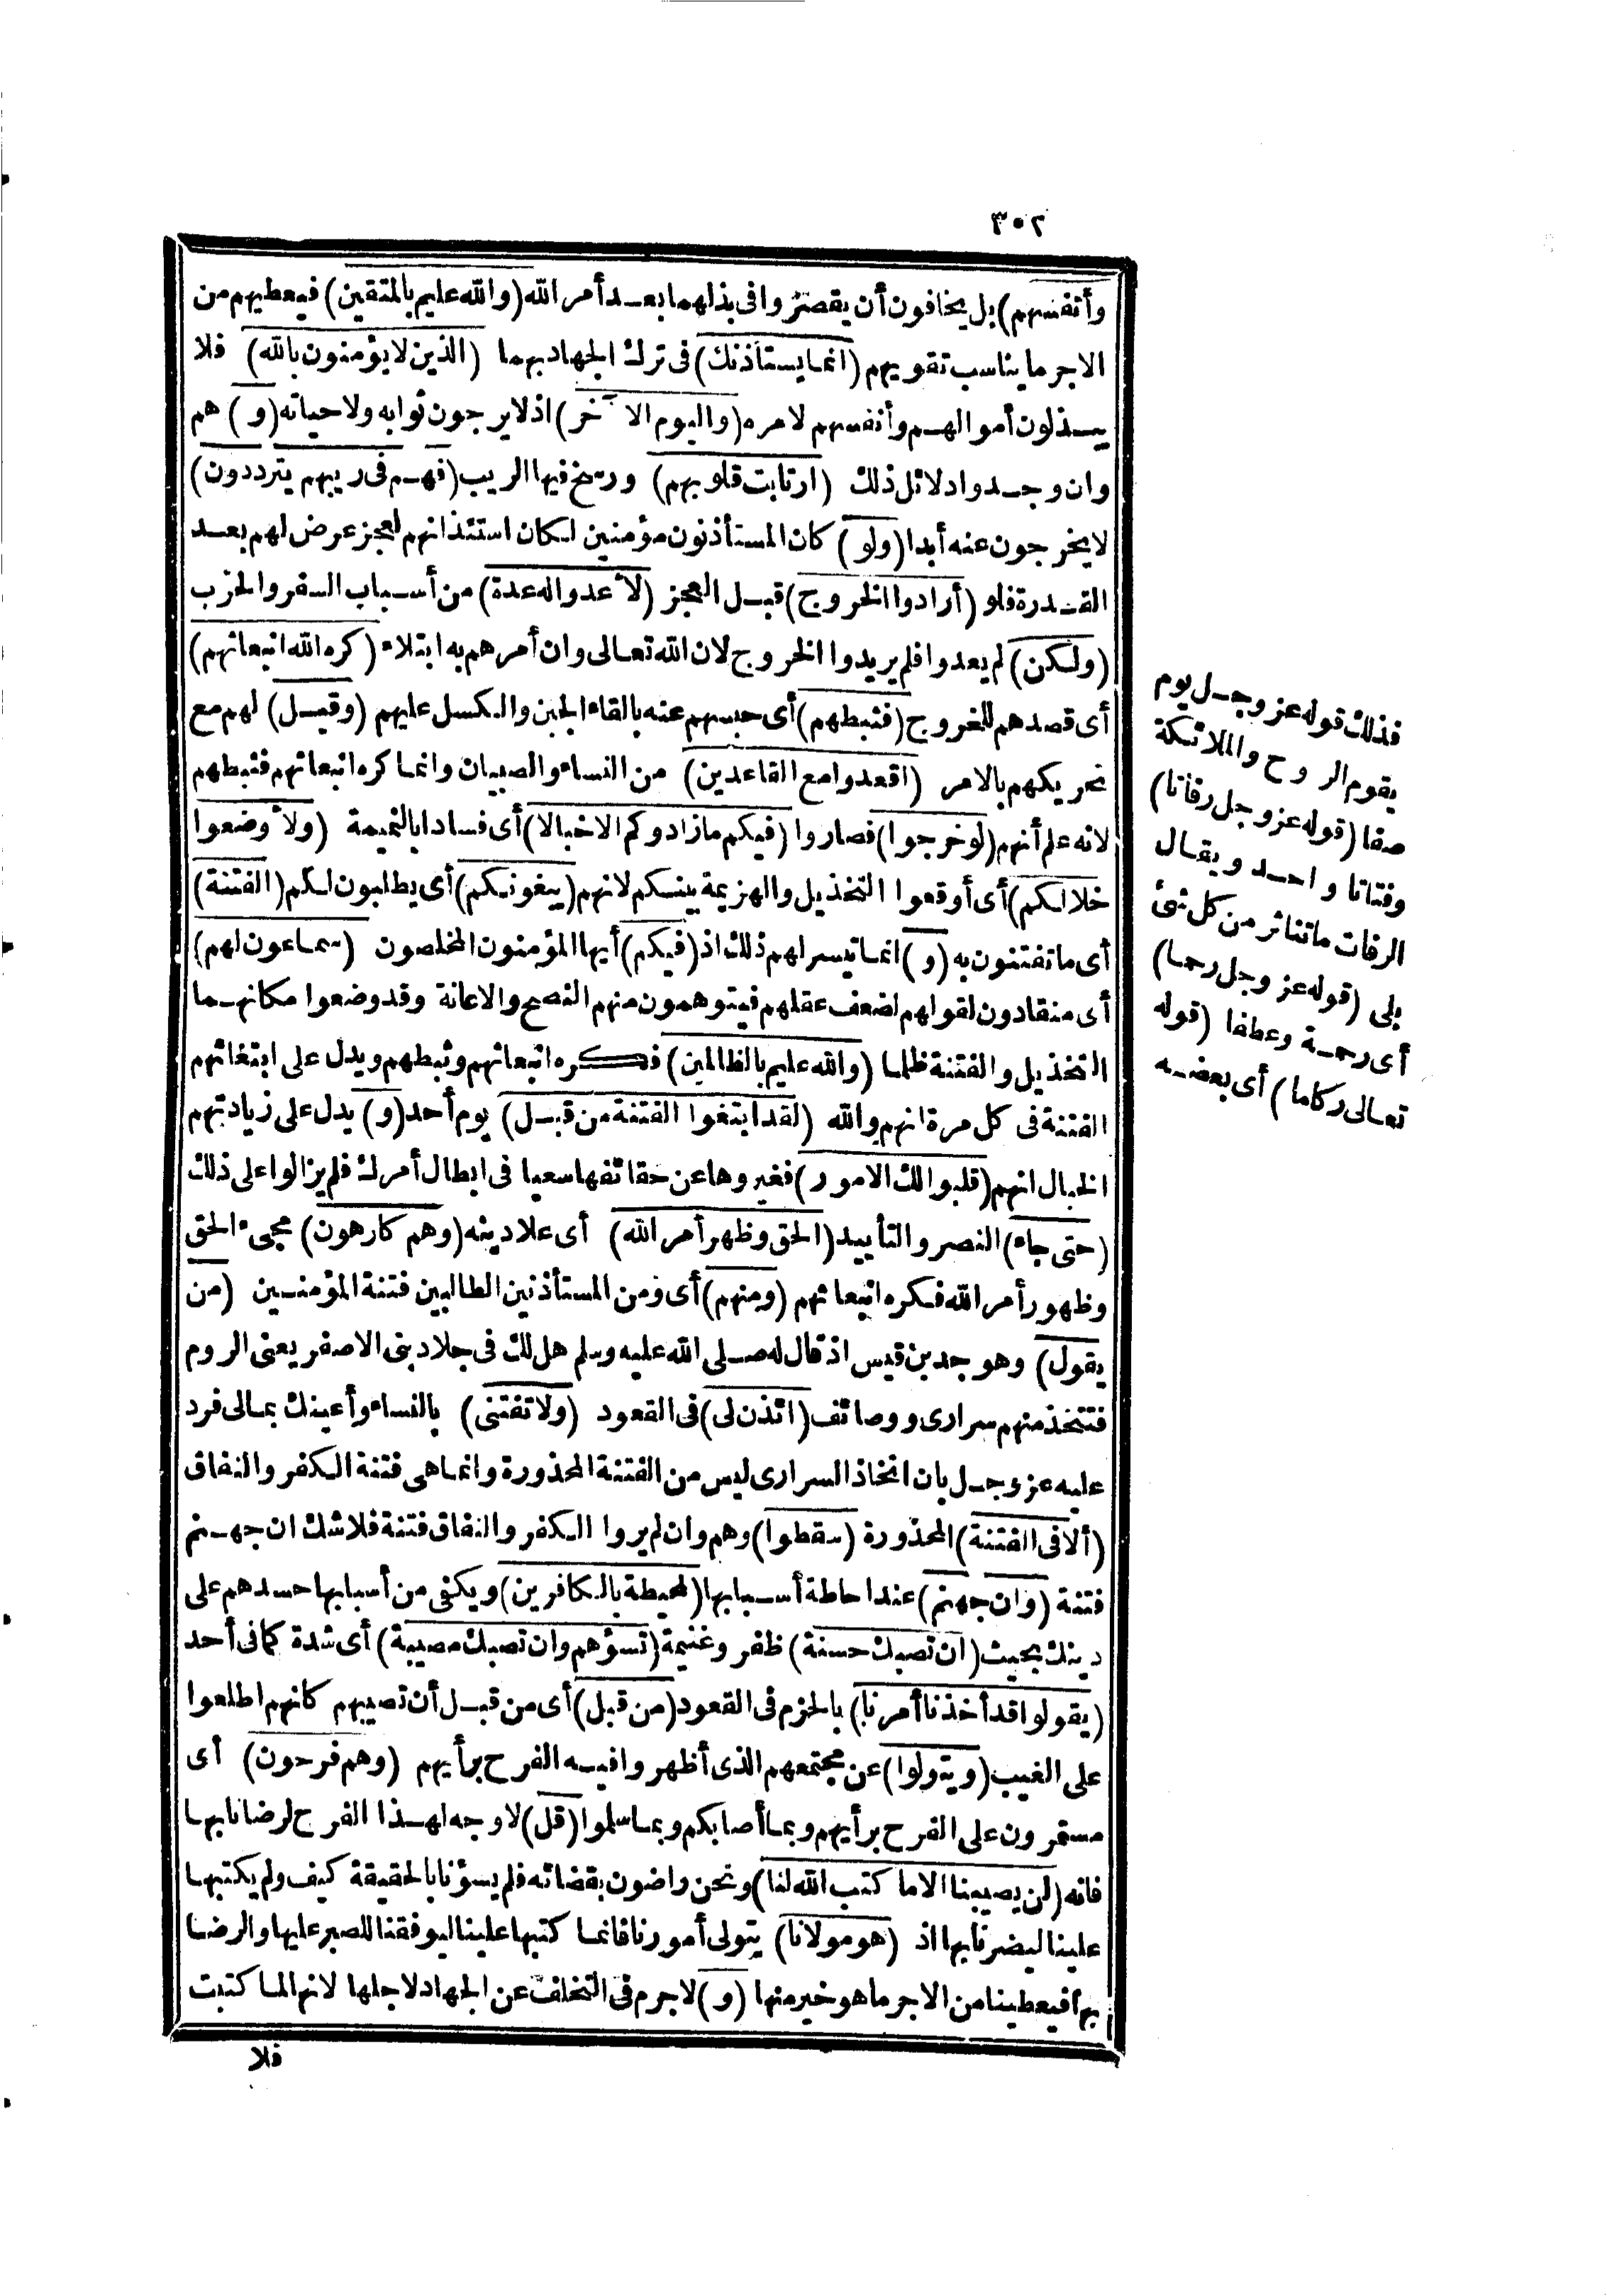 ٣٥٢
وأنفسهم) بل يخافون أن يقصروا فى بذلهما بعد أمر الله (والله عليم بالمتقين) فيعطيهم من
الاجر ما يناسب تقويهم (انما يستأذنك) فى ترك الجهاد بهما (الذين لا يؤمنون بالله) فلا
يبذلون أموالهم وأنفسهم لامره (واليوم الآخر) اذ لا يرجون ثوابه ولا حياته (و) هم
وان وجدوا دلائل ذلك (ارتابت قلوبهم) ورسخ فيها الريب (فهم فى ريبهم يترددون)
لا يخرجون عنه أبدا (ولو) كان المستأذنون مؤمنين لكان استئذانهم لعجز عرض لهم بعد
القدرة فلو (أرادوا الخروج) قبل العجز (لأعدوا له عدة) من أسباب السفر والحرب
(ولكن) لم يعدوا فلم يريدوا الخروج لان الله تعالى وان أمرهم به ابتلاء (كره الله انبعاثهم)
أى قصدهم للخروج (فثبطهم) أى حبسهم عنه بالقاء الجبن والكسل عليهم (وقيل) لهم مع
تحريكهم بالامر (اقعدوا مع القاعدين) من النساء والصبيان وانما كره انبعاثهم فثبطهم
لانه علم أنهم (لو خرجوا) فصاروا (فيكم ما زادوكم الا خبالا) أى فسادا بالنميمة (ولأوضعوا
خلالكم) أى أوقعوا التخذيل والهزيمة بينكم لانهم (يبغونكم) أى يطلبون لكم (الفتنة)
أى ما تفتنون به (و) انما تيسر لهم ذلك اذ (فيكم) أيها المؤمنون المخلصون (سماعون لهم)
أى منقادون لقولهم لضعف عقلهم فيتوهمون منهم النصح والاعانة وقد وضعوا مكانهما
التخذيل والفتنة ظلما (والله عليم بالظالمين) فكره انبعاثهم وثبطهم ويدل على ابتغائهم
الفتنة فى كل مرة انهم والله (لقد ابتغوا الفتنة من قبل) يوم أحد (و) يدل على زيادتهم
الخبال انهم (قلبوا لك الامور) فغيروها عن حقائقها سعيا فى ابطال أمرك فلم يزالوا على ذلك
(حتى جاء) النصر والتأييد (الحق وظهر أمر الله) أى علا دينه (وهم كارهون) مجىء الحق
وظهور أمر الله فكره انبعاثهم (ومنهم) أى ومن المستأذنين الطالبين فتنة المؤمنين (من
يقول) وهو جد بن قيس اذ قال له صلى الله عليه وسلم هل لك فى جلاد بنى الاصفر يعنى الروم
فتتخذ منهم سرارى ووصائف (ائذن لى) فى القعود (ولا تفتنى) بالنساء وأعينك بمالى فرد
عليه عز وجل بان اتخاذ السرارى ليس من الفتنة المحذورة وانما هى فتنة الكفر والنفاق
(ألا فى الفتنة) المحذورة (سقطوا) وهم وان لم يروا الكفر والنفاق فتنة فلا شك ان جهنم
فتنة (وان جهنم) عند احاطة أسبابها (لمحيطة بالكافرين) ويكفى من أسبابها حسدهم على
دينك بحيث (ان تصبك حسنة) ظفر وغنيمة (تسؤهم وان تصبك مصيبة) أى شدة كما فى أحد
(يقولوا قد أخذنا أمرنا) بالحزم فى القعود (من قبل) أى من قبل أن تصيبهم كانهم اطلعوا
على الغيب (ويتولوا) عن مجتمعهم الذى أظهروا فيه الفرح برأيهم (وهم فرحون) أى
مستمرون على الفرح برأيهم وبما أصابكم وبما سلموا (قل) لا وجه لهذا الفرح لرضانا بها
فانه (لن يصيبنا الا ما كتب الله لنا) ونحن راضون بقضائه فلم يسؤنا بالحقيقة كيف ولم يكتبها
علينا ليضرنا بها اذ (هو مولانا) يتولى أمورنا فانما كتبها علينا ليوفقنا للصبر عليها والرضا
بها فيعطينا من الاجر ما هو خير منها (و) لا جرم فى التخلف عن الجهاد لاجلها لانها لما كتبت
فلا
فذلك قوله عز وجل يوم
يقوم الروح والملائكة
صفا (قوله عز وجل رفاتا)
وفتاتا واحد ويقال
الرفات ما تناثر من كل شئ
بلى (قوله عز وجل رحما)
أى رحمة وعطفا (قوله
تعالى ركاما) أى بعضه